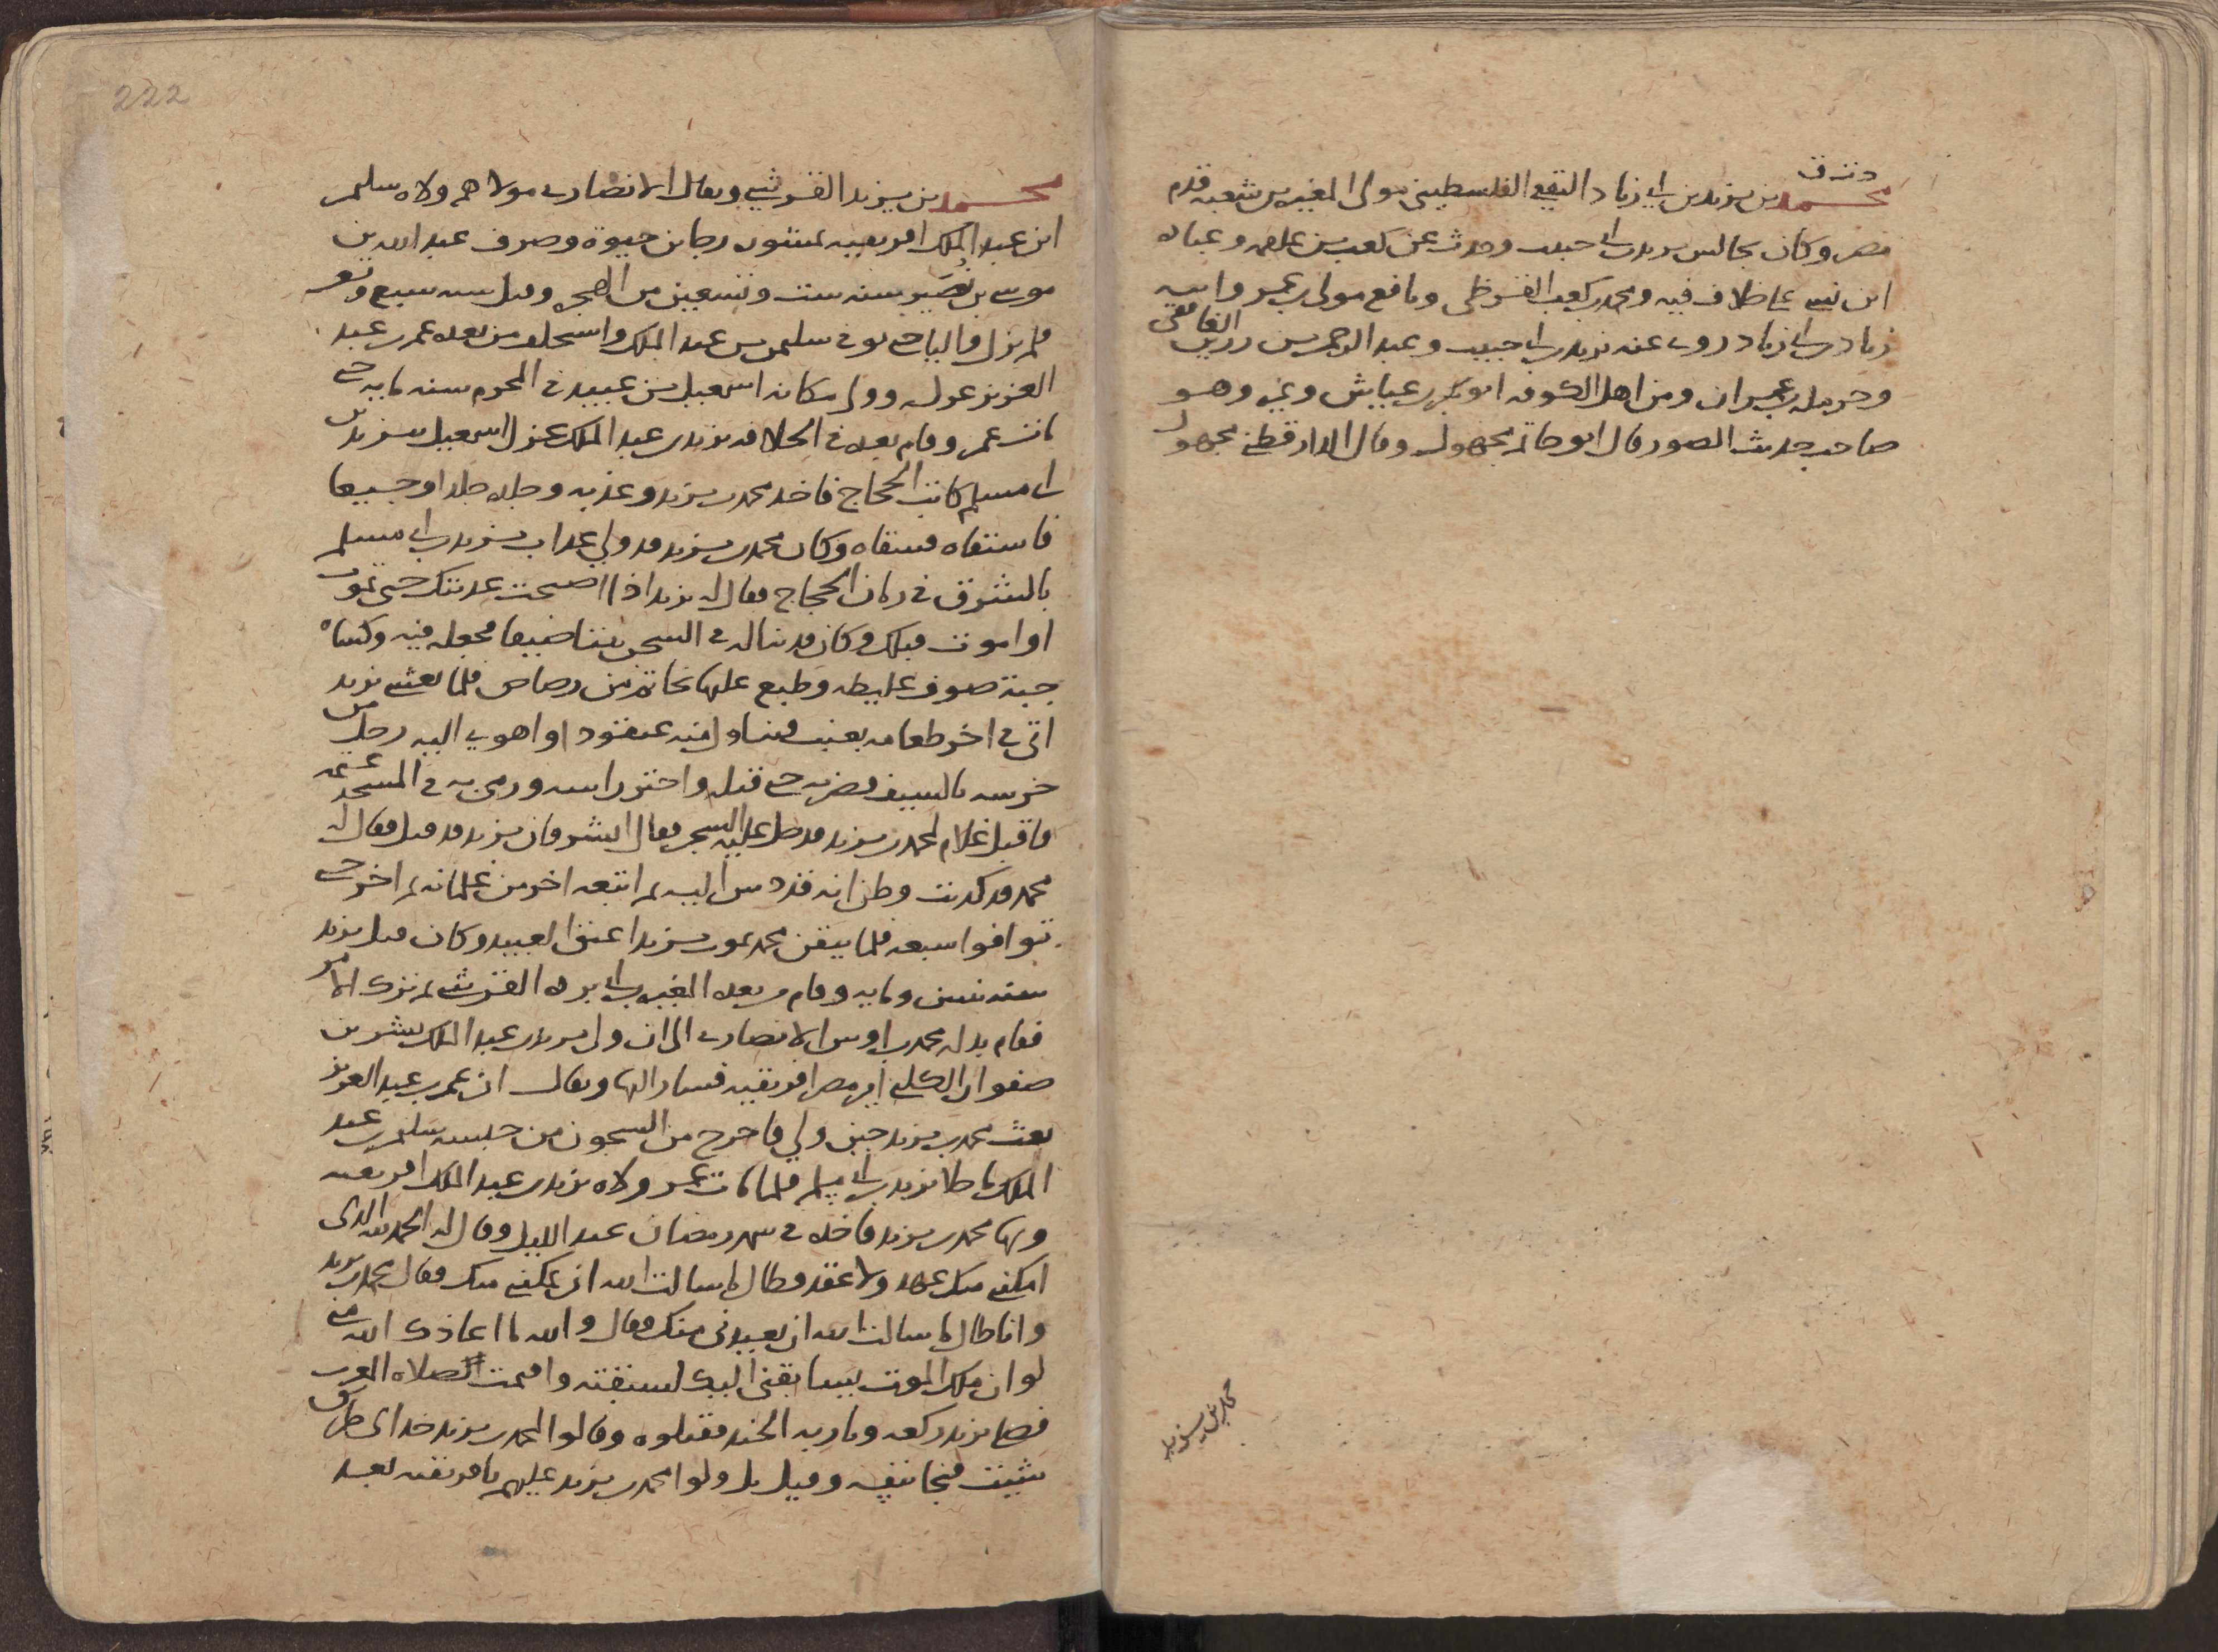 د ت ق
محمد بن يزيد بن ابي زياد الثقفي الفلسطيني مولى المغيره بن شعبه قدم
مصر وكان يجالس يزيد بن ابي حبيب وحدث عن كعب بن علقمه وعباده
ابن نسي على خلاف فيه ومحمد بن كعب القرظي ونافع مولى بن عمر وابيه
زياد بن ابي زياد روى عنه يزيد بن ابي حبيب وعبد الرحمن بن رزين الغافقي
وحرمله بن عمران ومن اهل الكوفه ابو بكر بن عياش وغيره وهو
صاحب حديث الصور قال ابو حاتم مجهول وقال الدارقطني مجهول
محمد بن يزيد
222
محمد بن يزيد القرشي ويقال الانصاري مولاهم ولاه سليمن
ابن عبد الملك افريقيه بمشوره رجا بن حيوة وصرف عبد الله بن
موسى بن نُصَير سنه ست وتسعين من الهجره وقيل سنه سبع وتسعين
فلم يزل واليا حتى توفي سليمن بن عبد الملك واستخلف من بعده عمر بن عبد
العزيز عزله وولى مكانه اسمعيل بن عبيد في المحرم سنه مايه حتى
مات عمر وقام بعده في الخلافه يزيد بن عبد الملك عزل اسمعيل بيزيد بن
ابي مسلم كاتب الحجاج فاخذ محمد بن يزيد وعذبه وجلده جلدا وجيعا
فاستقاه فسقاه وكان محمد بن يزيد قد ولي عذاب يزيد بن ابي مسلم
بالمشرق في زمان الحجاج فقال له يزيد اذا اصبحت عذبتك حتى تموت
او اموت قبلك وكان قد بنا له في السجن بيتا ضيقا فجعله فيه وكساه
جبة صوف غليظه وطبع عليها بخاتم من رصاص فلما تعشى يزيد
اتي في اخر طعامه بعنب فتناول منه عنقودا واهوى اليه رجل من
حرسه بالسيف فضربه حتى قتله واحتز راسه ورمى به في المسجد عتمه
فاقبل غلام لمحمد بن يزيد فدخل عليه السجن فقال ابشر فان يزيد قد قتل فقال له
محمد قد كذبت وظن انه قد دس اليه ثم اتبعه اخر من غلمانه ثم اخر حتى
توافوا سبعه فلما تيقن محمد بموت يزيد اعتق العبيد وكان قتل يزيد
سنه ثنتين ومايه وقام بعده المغيره بن ابي برده القرشي ثم ترك الامر
فقام بدله محمد بن اوس الانصاري الى ان ولى يزيد بن عبد الملك بشر بن
صفوان الكلبي امير مصر افريقيه فسار اليها ويقال ان عمر بن عبد العزيز
بعث محمد بن يزيد حين ولي فاخرج من السجون من حبسه سليمن بن عبد
الملك ما خلا يزيد بن ابي مسلم فلما مات عمر ولاه يزيد بن عبد الملك افريقيه
وبها محمد بن يزيد فاخذه في شهر رمضان عند الليل وقال له الحمد لله الذي
امكنني منك بلا عهد ولا عقد فطال ما سالت الله ان يمكنني منك فقال محمد بن يزيد
وانا طال ما سالت الله ان يعيذني منك فقال والله ما اعاذك الله مني
لو ان ملك الموت يسابقني اليك لسبقته واقيمت الصلاه المغرب
فصلى يزيد ركعه وثار به الجند فقتلوه وقالوا لمحمد بن يزيد خذ اى طريق
شيت فنجا بنفسه وقيل بل ولوا محمد بن يزيد عليهم بافريقيه بعد